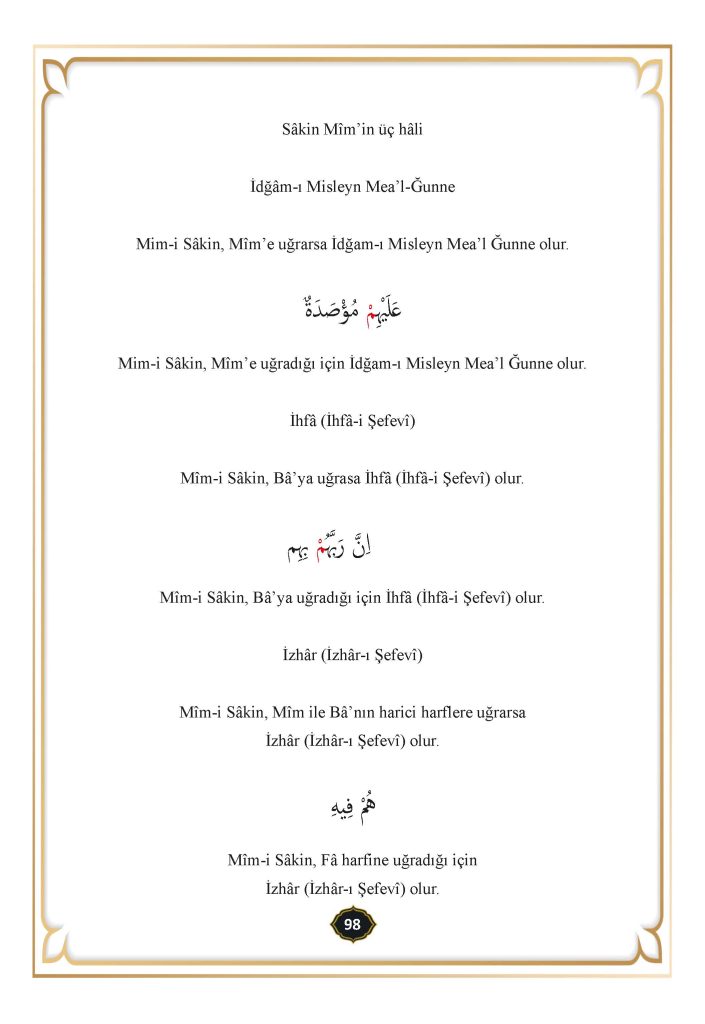 Sâkin Mîm’in üç hâli
İdğâm-ı Misleyn Mea’l-Ğunne
Mim-i Sâkin, Mîm’e uğrarsa İdğam-ı Misleyn Mea’l Ğunne olur.
عَلَيْهِمْ مُؤْصَدَةٌ
Mim-i Sâkin, Mîm’e uğradığı için İdğam-ı Misleyn Mea’l Ğunne olur.
İhfâ (İhfâ-i Şefevî)
Mîm-i Sâkin, Bâ’ya uğrasa İhfâ (İhfâ-i Şefevî) olur.
اِنَّ رَبَّهُمْ بِهِم
Mîm-i Sâkin, Bâ’ya uğradığı için İhfâ (İhfâ-i Şefevî) olur.
İzhâr (İzhâr-ı Şefevî)
Mîm-i Sâkin, Mîm ile Bâ’nın harici harflere uğrarsa
İzhâr (İzhâr-ı Şefevî) olur.
هُمْ فِيهِ
Mîm-i Sâkin, Fâ harfine uğradığı için
İzhâr (İzhâr-ı Şefevî) olur.
98